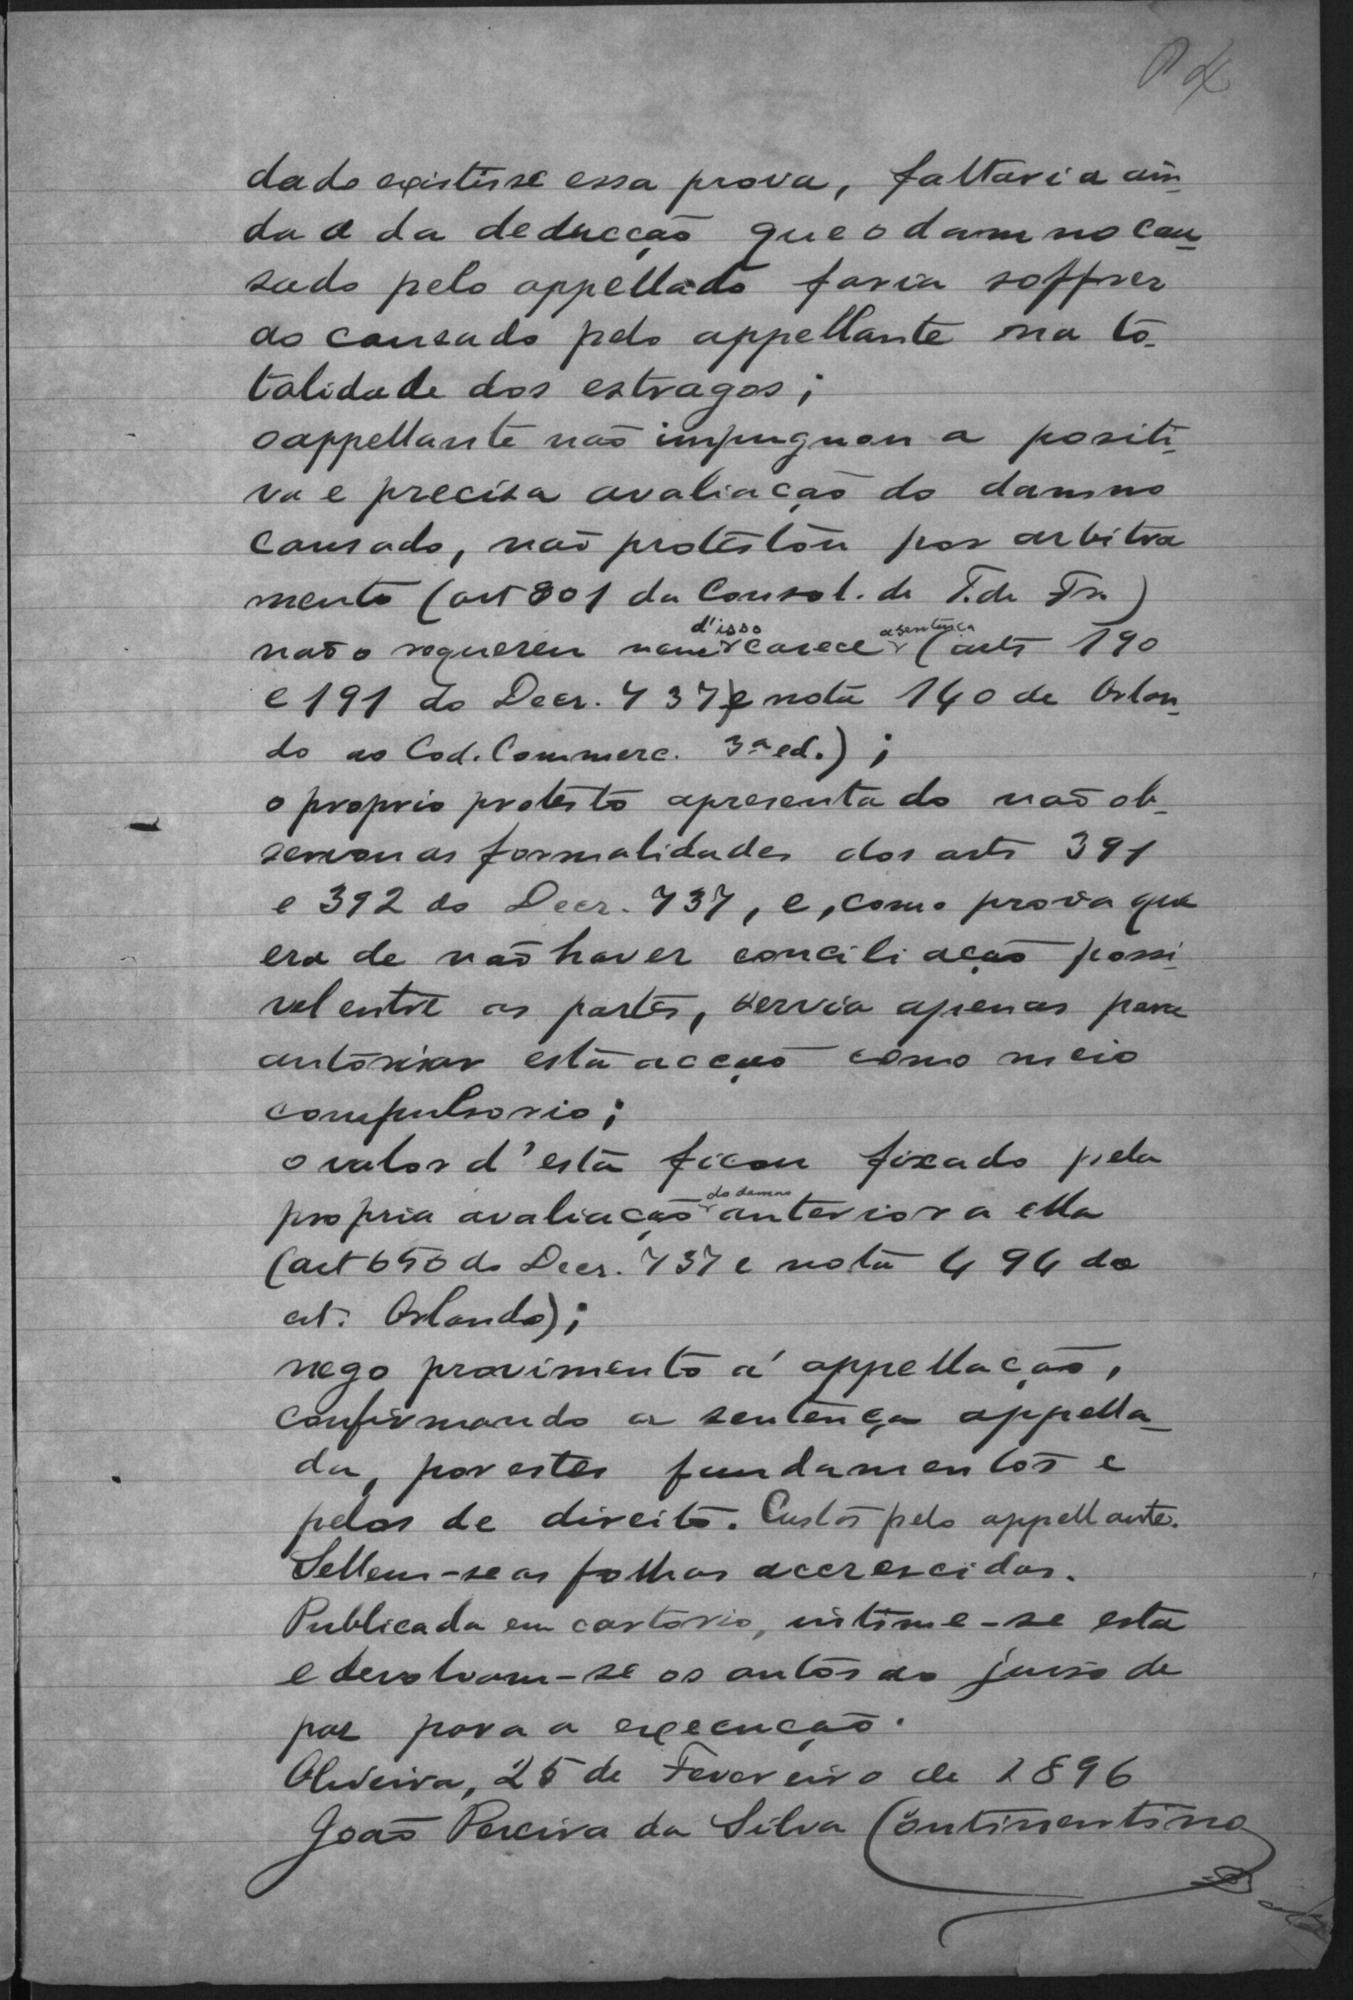 dado existisse essa prova, faltaria ain-
da a da deducção que o damno cau-
sado pelo appellado faria soffrer
ao causado pelo appellante na to-
talidade dos estragos;
o appellante não impugnou a positi-
va e precisa avaliação do damno
causado, não protestou por arbitra
mento (art 801 da Consol. de T. de Fr.)
d'isso a sentença
não o requereu nem carece (arts 190
e 191 do Decr. 737 e nota 140 de Orlan-
do ao Cod. Commerc. 3ª ed.);
o proprio protesto apresentado não ob-
servou as formalidades dos arts 391
e 392 do Decr. 737, e, como prova que
era de não haver conciliação possi-
vel entre as partes, servia apenas para
autorisar esta acção como meio
compulsorio;
o valor d'esta ficou fixado pela
do damno
propria avaliação anterior a ella
(art 650 do Decr. 737 e nota 494 do
cit. Orlando);
nego provimento á appellação,
confirmando a sentença appella-
da, por estes fundamentos e
pelos de direito. Custos pelo appellante.
Sellem-se as folhas accrescidas.
Publicada em cartorio, intime-se esta
e devolvam-se os autos ao juiso de
paz para a execução.
Oliveira, 25 de Fevereiro de 1896
João Pereira da Silva Continentino